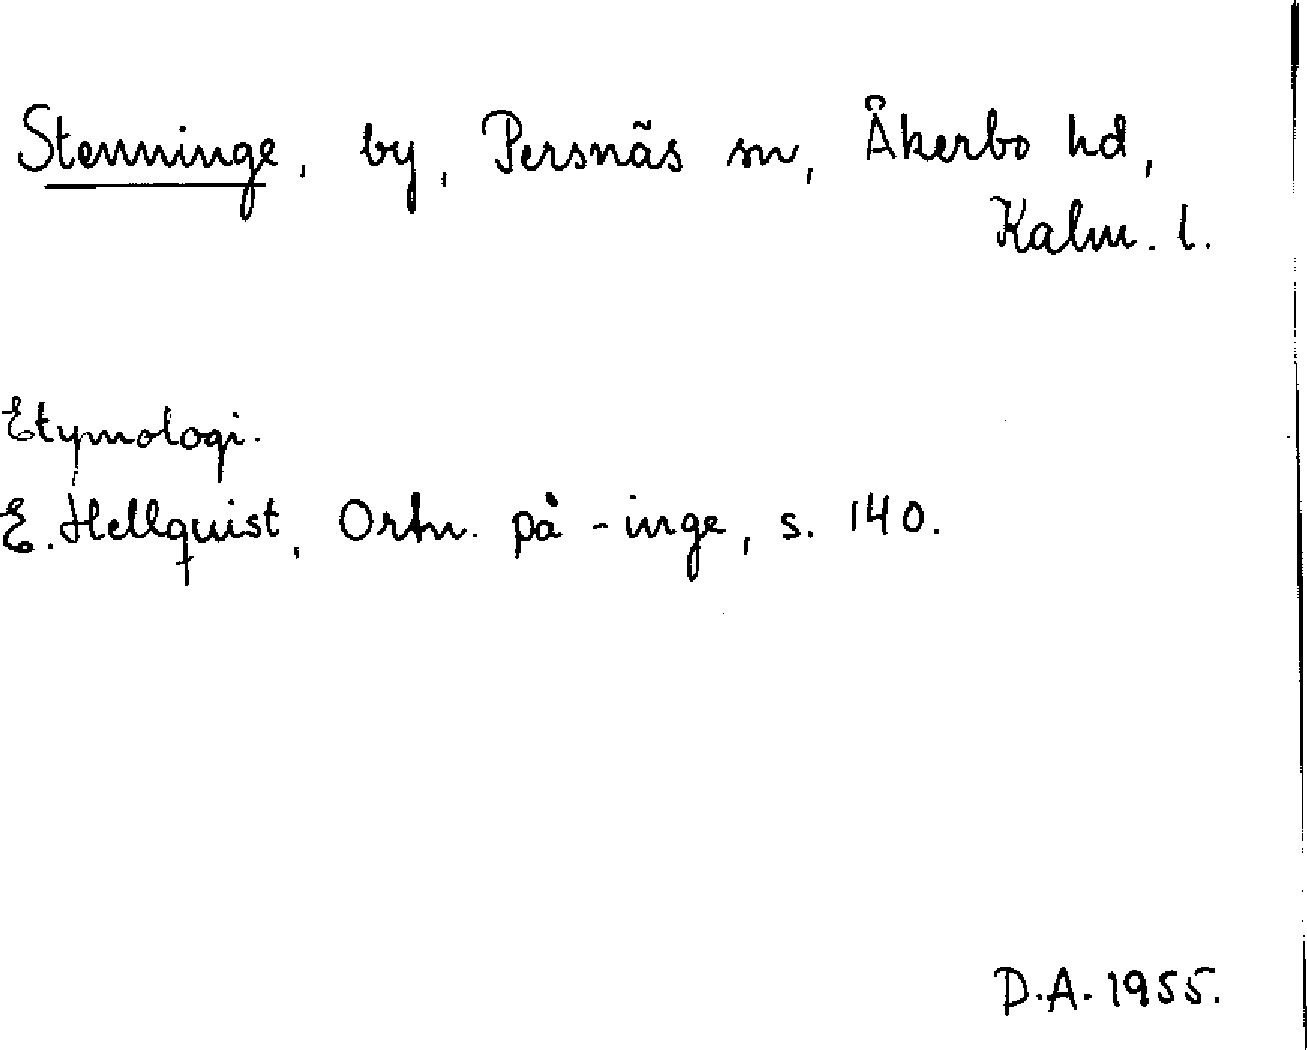 Stenninge, by, Persnäs sn, Åkerbo hd,
Kalm. l.
Etymologi.
E. Hellquist, Ortn. på -inge, s. 140.
D.A. 1955.